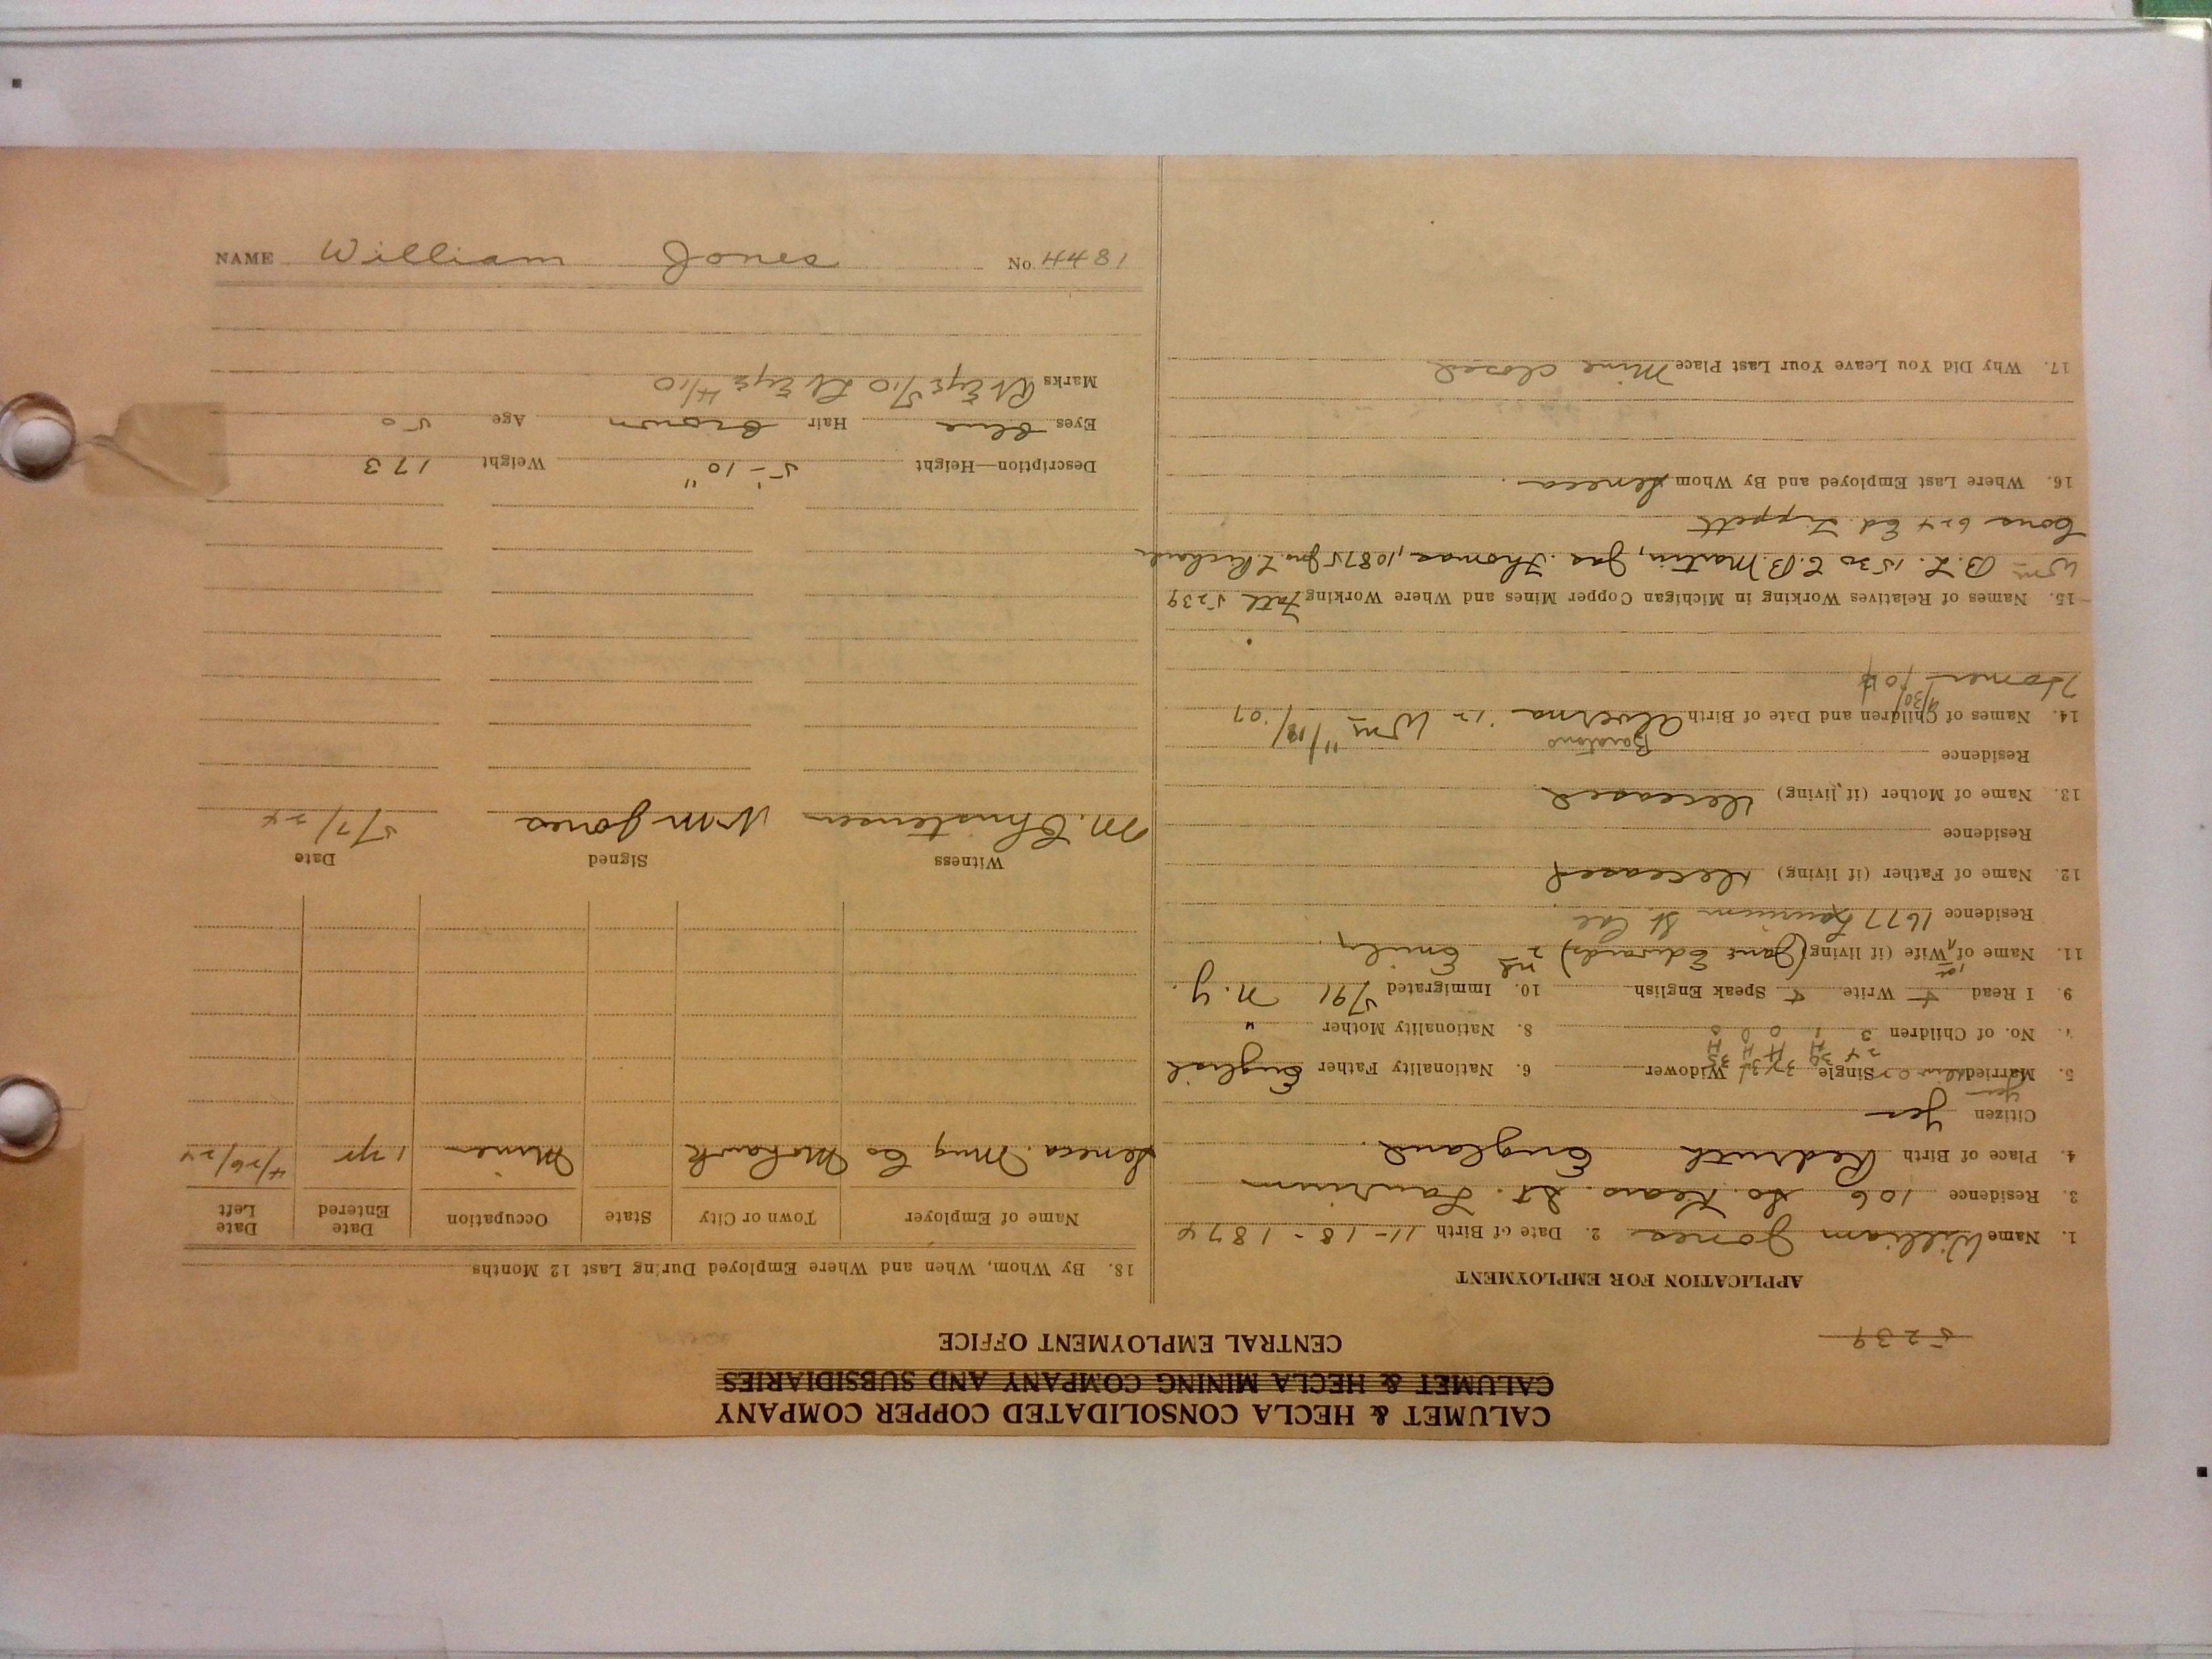 CALUMET & HECLA CONSOLIDATED COPPER COMPANY
CALUMET & HECLA MINING COMPANY AND SUBSIDIARIES
CENTRAL EMPLOYMENT OFFICE
5239
APPLICATION FOR EMPLOYMENT
1. Name William Jones 2. Date of Birth 11-18-1874
3. Residence 106 So. Kears. St. Laurium
4. Place of Birth Redruth England.
Citizen Yes
Yes
5. Married Single Widower 6. Nationality Father English
No. of Children 3 1 0 0 8. Nationality Mother "
9. I Read + Write + Speak English 10. Immigrated 5/91 N.Y.
11. Name of Wife (if living) (Jane Edwards) 2nd Emily
Residence 1677 Laurium St. Cal
12. Name of Father (if living) Deceased
Residence
13. Name of Mother (if living) Deceased
Residence
14. Names of Children and Date of Birth Alverna 12 Wm 11/18/07
Homer 9/30/10
15. Names of Relatives Working in Michigan Copper Mines and Where Working 5239
Wm B.L. 1530 E.B. Martin, Jas. Thomas, 10875 Jno. T. Richards
Cons 624 Ed. Tippett
16. Where Last Employed and By Whom Seneca.
17. Why Did You Leave Your Last Place Mine closed
18. By Whom, When and Where Employed During Last 12 Months
Name of Employer Town or City State Occupation Date Entered Date Left
Seneca Mng Co Mohawk Miner 1 yr 4/26/24
Witness Signed Date
M. Christensen Wm Jones 5/7/24
Description—Height 5'-10" Weight 173
Eyes Blue Hair Brown Age 50
Marks Rt Eye 5/10 Lt Eye 4/10
NAME William Jones No 4481